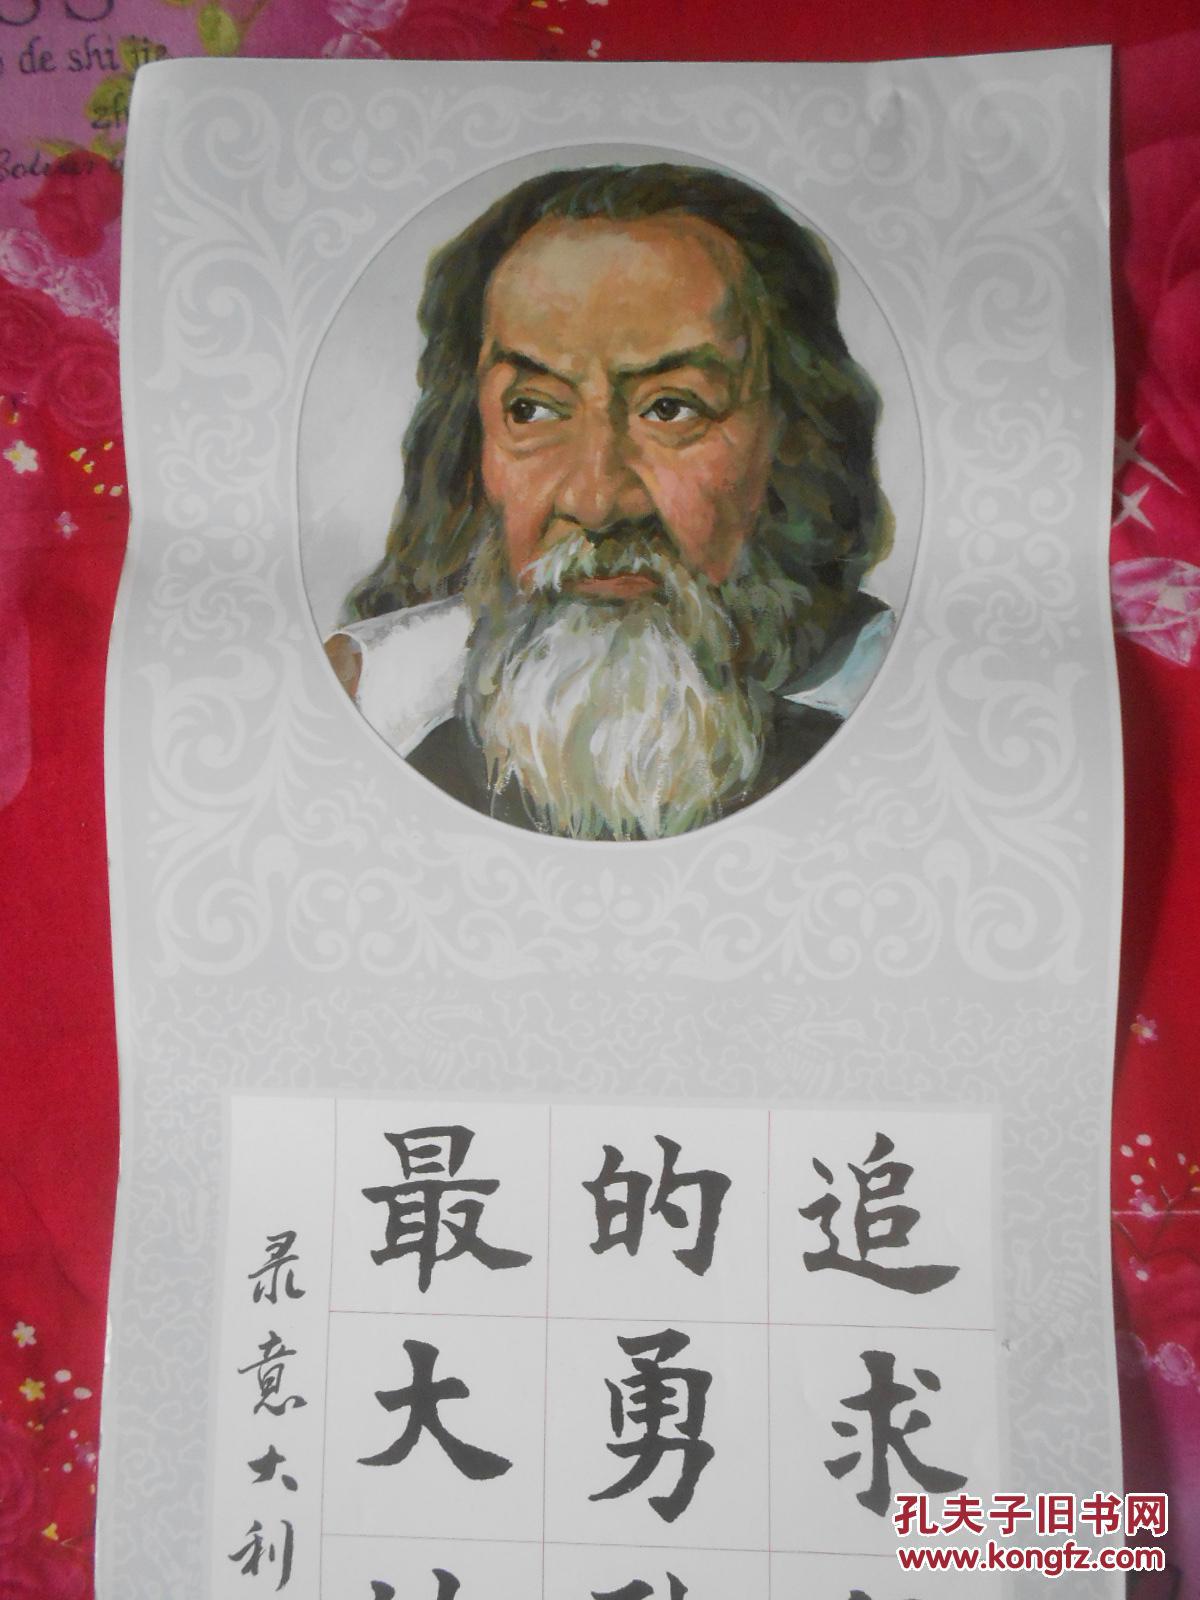 de shi jie
追求
的勇
最大
录意大利
孔夫子旧书网
www.kongfz.com